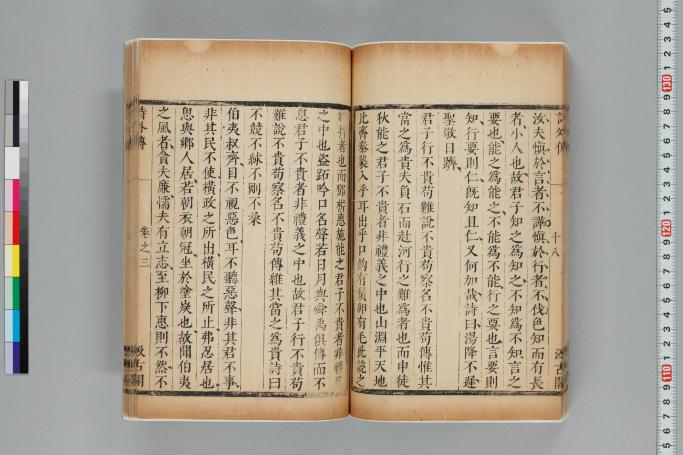 汝夫慎於言者不譁慎於行者不伐色知而有長
者小人也故君子知之為知之不知為不知言之
要也能之為能之不能為不能行之要也言要則
知行要則仁既知且仁又何加哉詩曰湯降不遲
聖敬日躋
君子行不貴苟難說不貴苟察名不貴苟傳惟其
當之為貴夫負石而赴河行之難為者也而申徒
狄能之君子不貴者非禮義之中也山淵平天地
比齊秦襲入乎耳出乎口鉤有須卵有毛此說之
難持者也而鄧析惠施能之君子不貴者非禮義
之中也盜跖吟口名聲若日月與舜禹俱傳而不
息君子不貴者非禮義之中也故君子行不貴苟
難說不貴苟察名不貴苟傳維其當之為貴詩曰
不競不絿不剛不柔
伯夷叔齊目不視惡色耳不聽惡聲非其君不事
非其民不使橫政之所出橫民之所止弗忍居也
思與鄉人居若朝衣朝冠坐於塗炭也故聞伯夷
之風者貪夫廉懦夫有立志至柳下惠則不然不
詩外傳
卷之三
汲古閣
詩外傳
十八
汲古閣